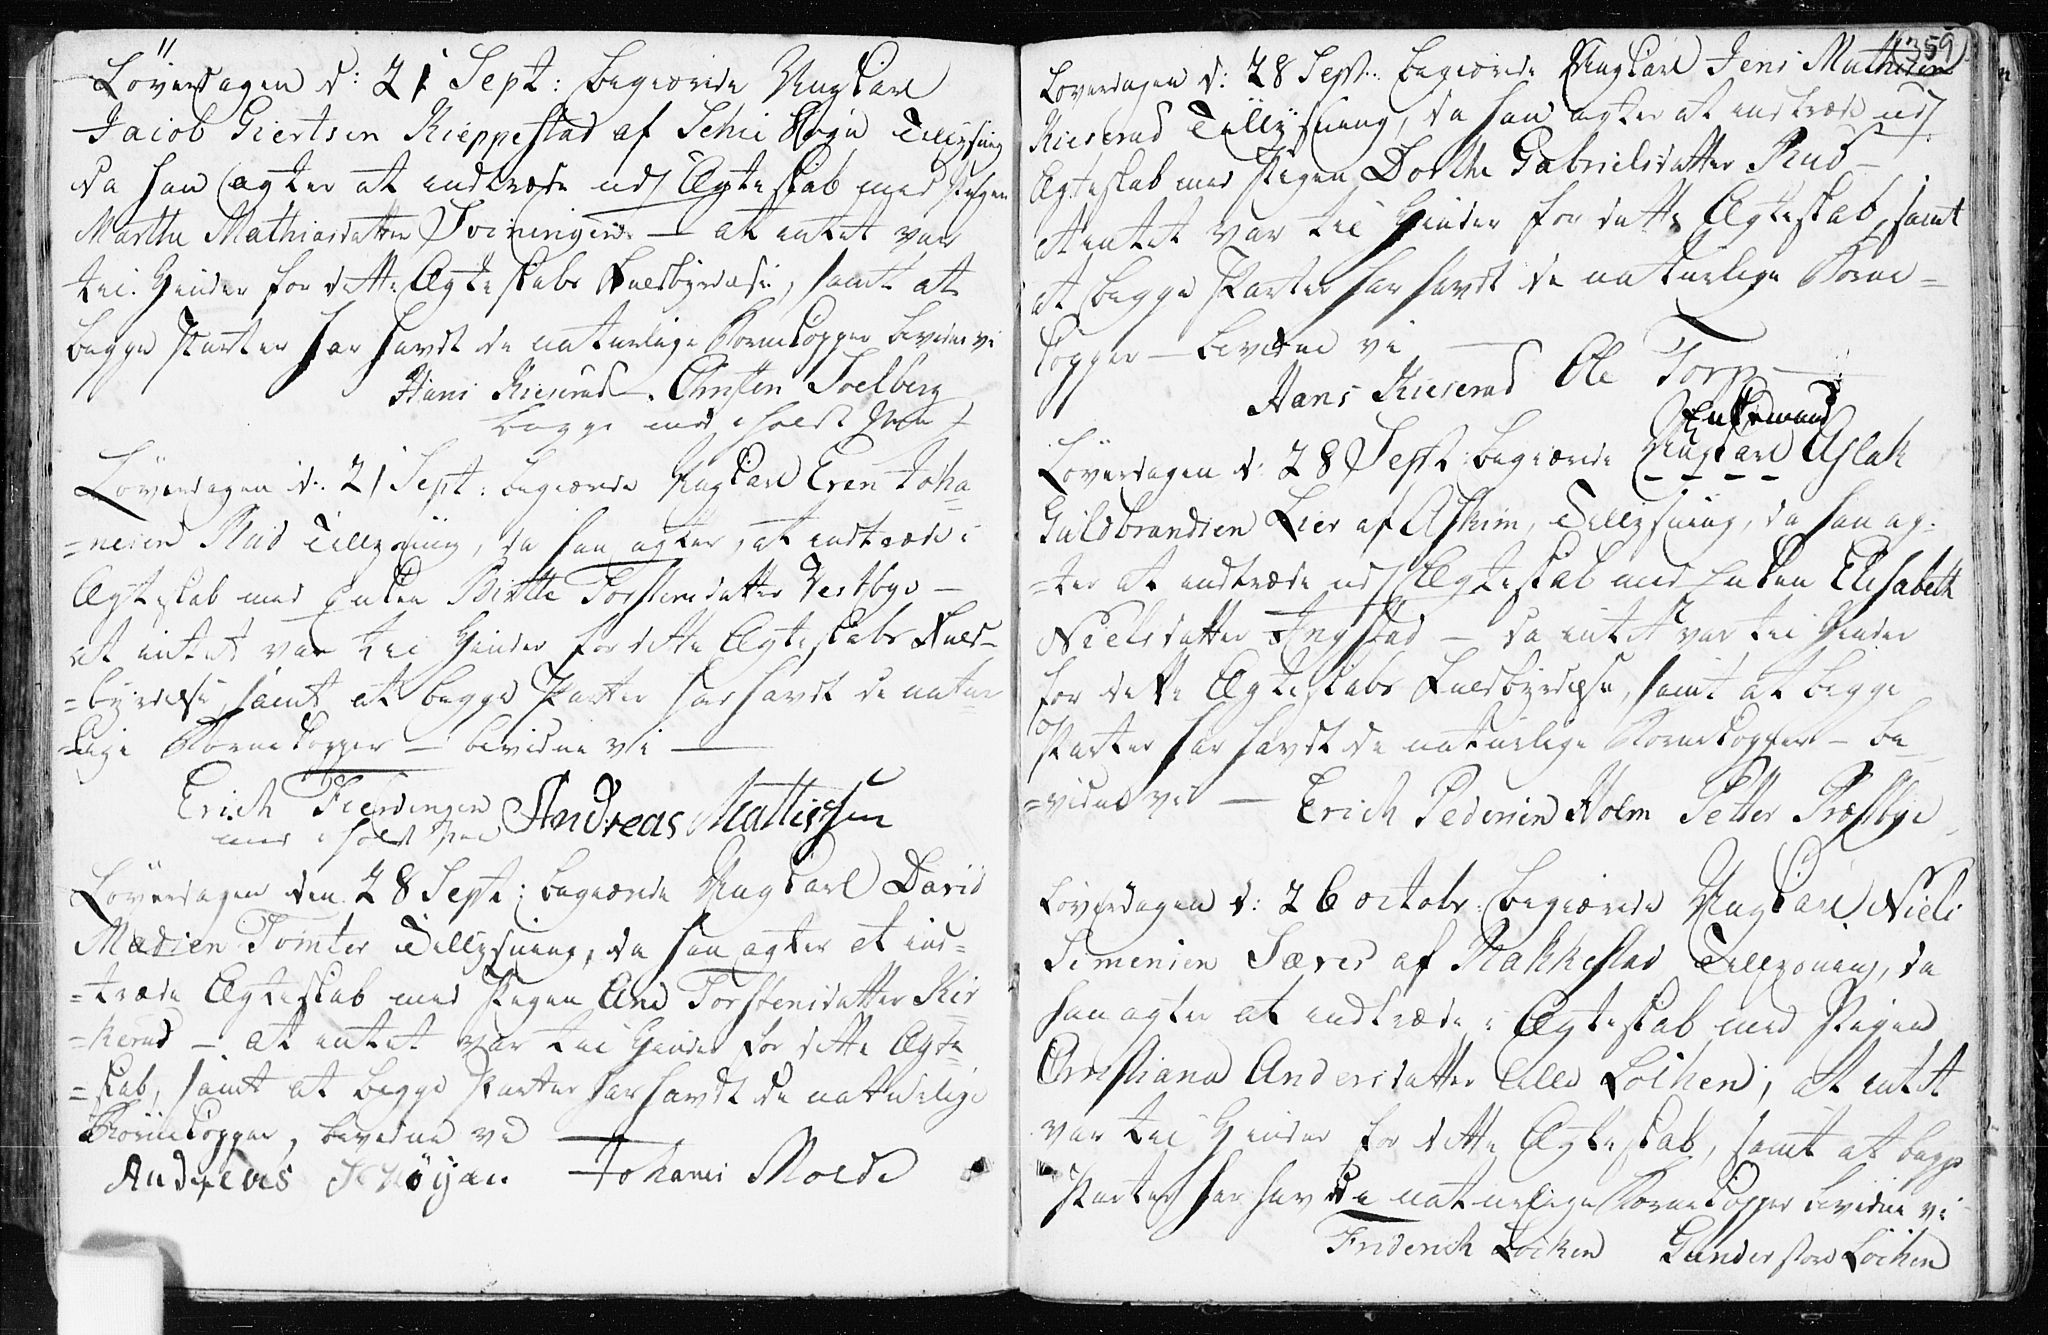 Löverdagen d: 21 Sept: begiærede Ungkarl
Jacob Giertsen Kieppestad af Schie Sogn Tillysning
da han agter at indtræde udj Ægteskab med Pigen
Marthe Mathiasdatter Svinenger — at intet var
til Hinder for dette Ægteskabs Fuldbyrdelse, samt at
begge Parter har havdt de naturlige Bornekopper bevidne vi
Hans Kieserud. Christen Soelberg
begge med iholdt Pen
Löverdagen d: 21 Sept: begiærede Ungkarl Eren Joha
=nesen Rud Tillysning, da han agter, at indtræde i
Ægteskab med Enken Birtte Torstensdatter Vestbye —
at intet var til Hinder for dette Ægteskabs Fuld=
=byrdelse, samt at begge Parter har havdt de natur
=lige Bornekopper — bevidne vi —
Erich Fierdingen Andreas Mattissen
med iholdt Pen
Löverdagen den 28 Sept: begiærede Ungkarl David
Madsen Tomter Tillysning, da han agter at ind=
=træde Ægteskab med Pigen Ane Torstensdatter Kir
=kerud — at intet var til Hinder for dette Ægte
=skab, samt at begge Parter har havdt de naturlige
Börnekopper, bevidne vi —
Andreas Schöyen Johanes Molde
359
Loverdagen d: 28 Sept: begiærede Ungkarl Jens Mathisen
Kieserud Tillysning, da han agter at indtræde udj
Ægteskab med Pigen Dorthe Gabrielsdatter Rud —
at intet var til Hinder for dette Ægteskab, samt
at begge Parter har havdt de naturlige Borne=
kopper — bevidne vi —
Hans Kieserud Ole Torp
Enkemand
Löverdagen d: 28 Sept: begiærede Ungkarl Aslak
Guldbrandsen Lier af Askim, Tillysning, da han ag=
=ter at indtræde udj Ægteskab med Enken Elisabeth
Nielsdatter Ingstad — da intet var til Hinder
for dette Ægteskabs Fuldbyrdelse, samt at begge
Parter har havdt de naturlige Bornekopper — be
=vidne vi — Erich Pedersen Holm Petter Præstbye
Löverdagen d: 26 octobr: begiærede Ungkarl Niels
Simensen Sæves af Rakkestad Tillysning, da
han agter at indtræde i Ægteskab med Pigen
Christiana Andersdatter Lille Löiken, at intet
var til Hinder for dette Ægteskab, samt at begge
Parter har havdt de naturlige Bornekopper bevidne vi
Friderich Löcken Gunder store Löcken